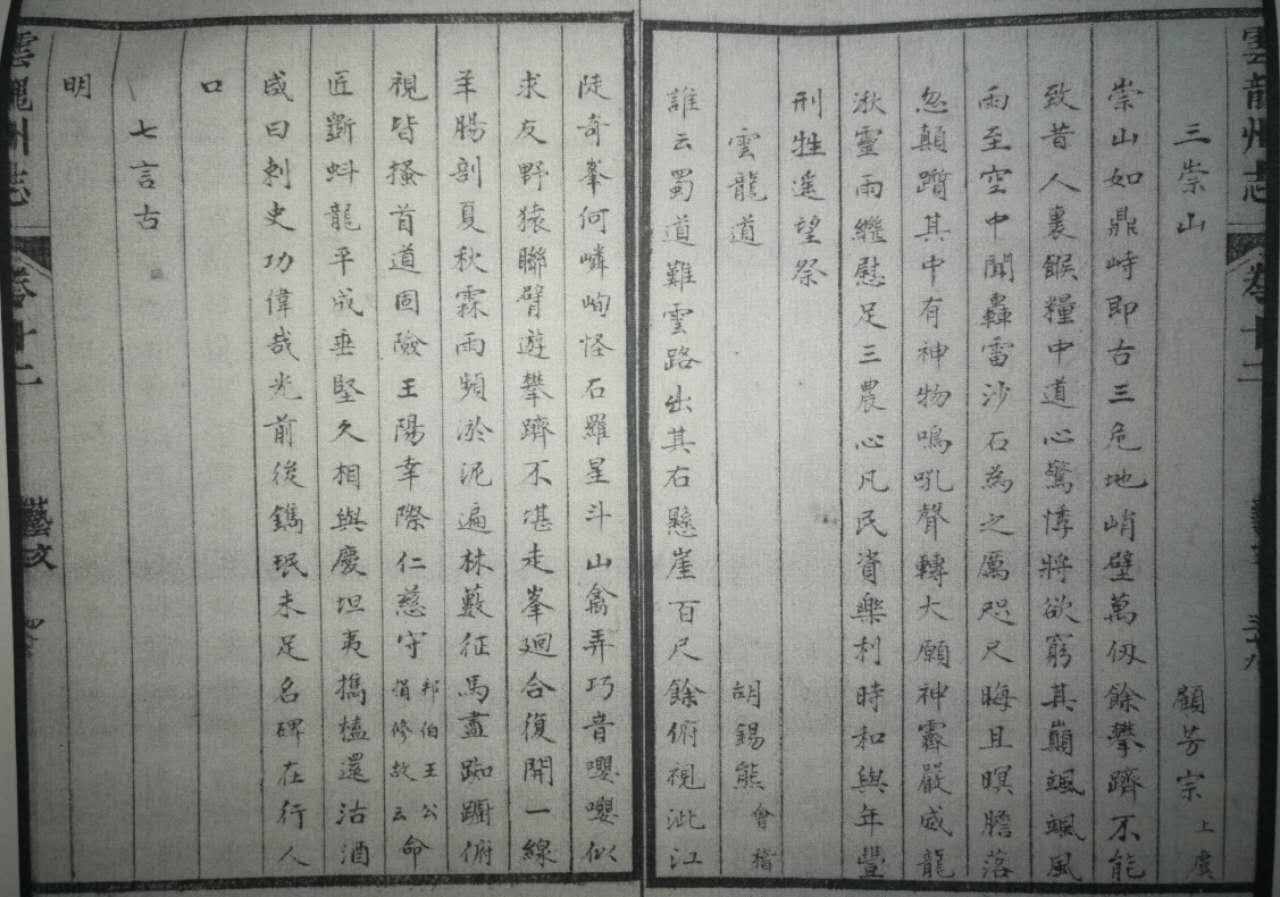 雲龍州志 卷十二
三崇山 顧芳宗上虞
崇山如鼎峙即古三危地峭壁萬仭餘攀躋不能
致昔人裹餱糧中道心驚悸將欲窮其巔颯颯風
雨至空中聞轟雷沙石為之厲咫尺晦且暝膽落
忽顛躓其中有神物鳴吼聲轉大願神霽嚴威龍
湫靈雨繼慰足三農心凡民資樂利時和與年豐
刑牲遥望祭
雲龍道 胡錫熊會稽
誰云蜀道難雲路出其右懸崖百尺餘俯視沘江
陡奇峯何嶙峋怪石羅星斗山禽弄巧音嚶嚶似
求友野猿聯臂遊攀躋不堪走峯廻合復開一線
羊腸剖夏秋霖雨頻淤泥遍林藪征馬盡踟躕俯
視皆搔首道固險王陽幸際仁慈守邦伯王公捐修故云命
匠斷蚪龍平成垂堅久相與慶坦夷擕榼還沽酒
咸曰刺史功偉哉光前後鐫珉未足名碑在行人
口
七言古
明
雲龍州志 卷十二 藝文